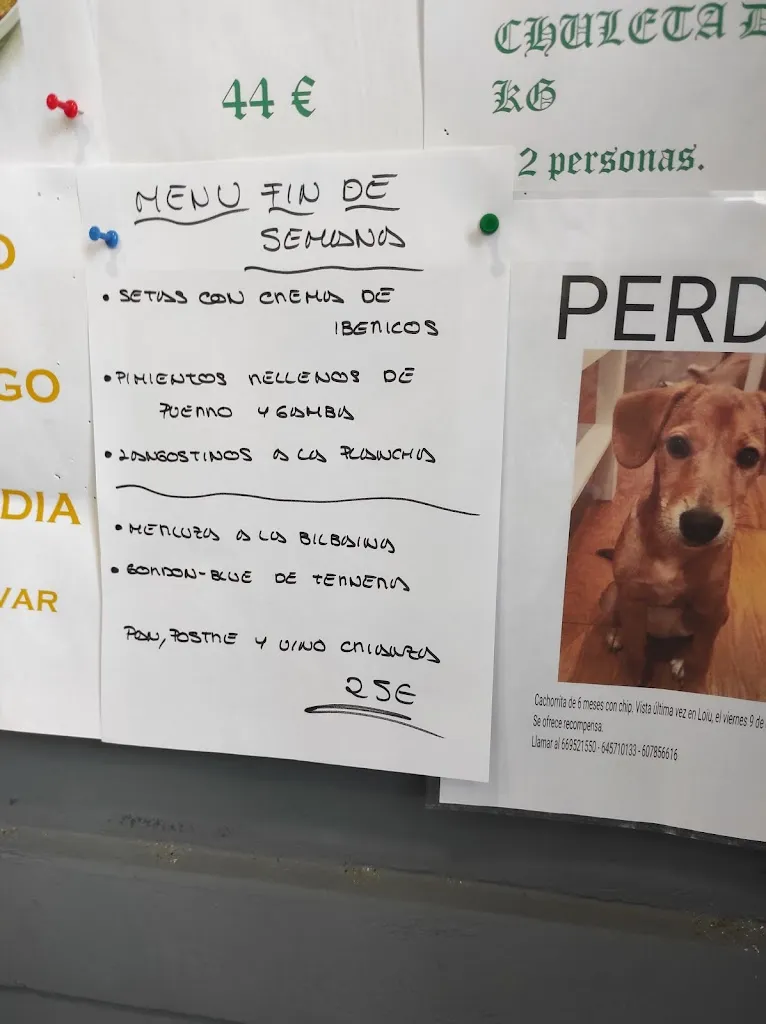 44 €
CHULETA D
KG
2 personas.
O
GO
DIA
VAR
MENU FIN DE
SEMANA
• SETAS CON CREMA DE
IBERICOS
• PIMIENTOS RELLENOS DE
PUERRO Y GAMBA
• LANGOSTINOS A LA PLANCHA
• MERLUZA A LA BILBAINA
• GORDON-BLUE DE TERNERA
PAN, POSTRE Y VINO CRIANZA
25€
PERD
Cachorrita de 6 meses con chip. Vista última vez en Loiu, el viernes 9 de
Se ofrece recompensa.
Llamar al 669521550 - 645710133 - 607856616